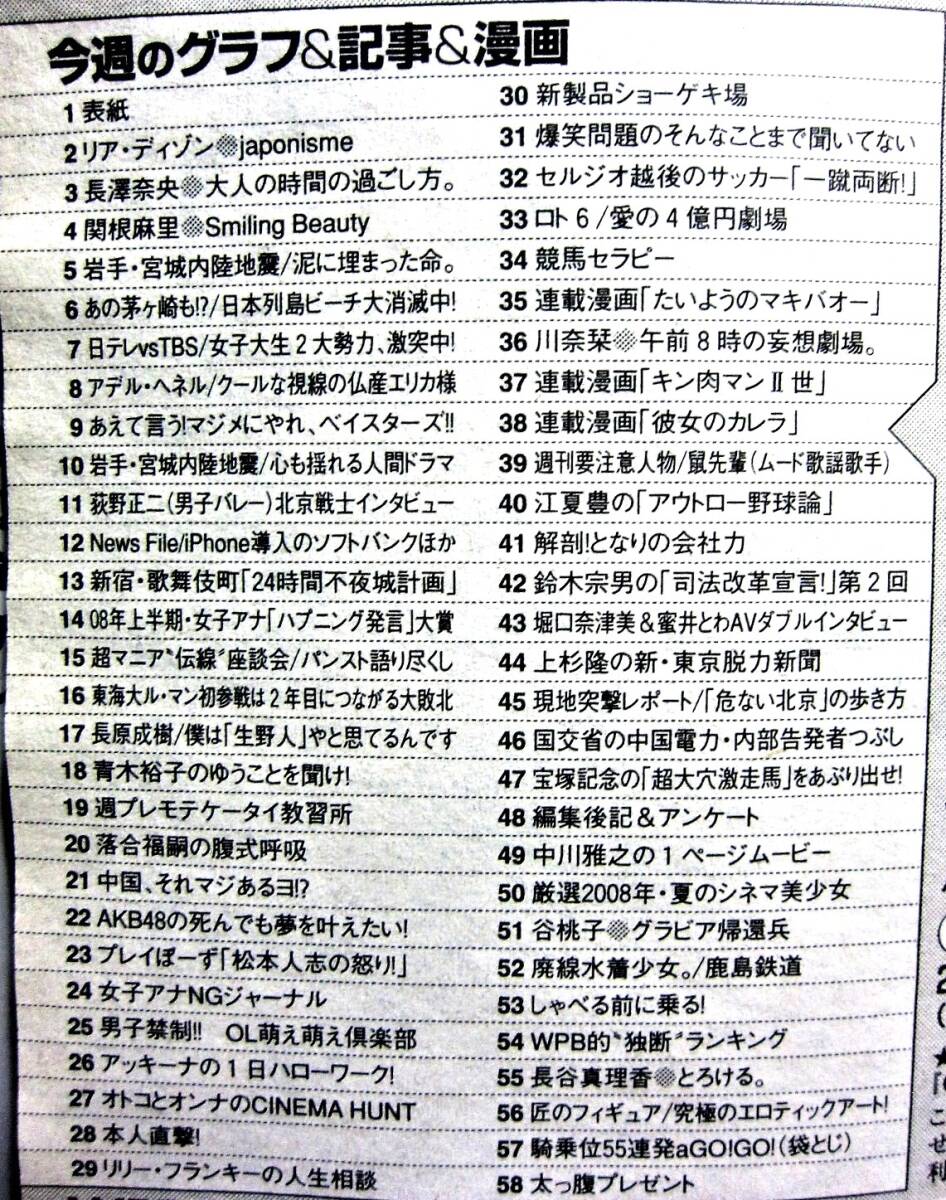 今週のグラフ&記事&漫画
1 表紙
2 リア・ディゾン●japonisme
3 長澤奈央●大人の時間の過ごし方。
4 関根麻里●Smiling Beauty
5 岩手・宮城内陸地震/泥に埋まった命。
6 あの茅ヶ崎も!?/日本列島ビーチ大消滅中!
7 日テレvsTBS/女子大生2大勢力、激突中!
8 アデル・ヘネル/クールな視線の仏産エリカ様
9 あえて言う!マジメにやれ、ベイスターズ!!
10 岩手・宮城内陸地震/心も揺れる人間ドラマ
11 荻野正二(男子バレー)北京戦士インタビュー
12 News File/iPhone導入のソフトバンクほか
13 新宿・歌舞伎町「24時間不夜城計画」
14 08年上半期・女子アナ「ハプニング発言」大賞
15 超マニア〝伝線〟座談会/パンスト語り尽くし
16 東海大ル・マン初参戦は2年目につながる大敗北
17 長原成樹/僕は「生野人」やと思てるんです
18 青木裕子のゆうことを聞け!
19 週プレモテケータイ教習所
20 落合福嗣の腹式呼吸
21 中国、それマジあるヨ!?
22 AKB48の死んでも夢を叶えたい!
23 プレイぼーず「松本人志の怒り!」
24 女子アナNGジャーナル
25 男子禁制!! OL萌え萌え倶楽部
26 アッキーナの1日ハローワーク!
27 オトコとオンナのCINEMA HUNT
28 本人直撃!
29 リリー・フランキーの人生相談
30 新製品ショーゲキ場
31 爆笑問題のそんなことまで聞いてない
32 セルジオ越後のサッカー「一蹴両断!」
33 ロト6/愛の4億円劇場
34 競馬セラピー
35 連載漫画「たいようのマキバオー」
36 川奈栞●午前8時の妄想劇場。
37 連載漫画「キン肉マンⅡ世」
38 連載漫画「彼女のカレラ」
39 週刊要注意人物/鼠先輩(ムード歌謡歌手)
40 江夏豊の「アウトロー野球論」
41 解剖!となりの会社力
42 鈴木宗男の「司法改革宣言!」第2回
43 堀口奈津美&蜜井とわAVダブルインタビュー
44 上杉隆の新・東京脱力新聞
45 現地突撃レポート/「危ない北京」の歩き方
46 国交省の中国電力・内部告発者つぶし
47 宝塚記念の「超大穴激走馬」をあぶり出せ!
48 編集後記&アンケート
49 中川雅之の1ページムービー
50 厳選2008年・夏のシネマ美少女
51 谷桃子●グラビア帰還兵
52 廃線水着少女。/鹿島鉄道
53 しゃべる前に乗る!
54 WPB的〝独断〟ランキング
55 長谷真理香●とろける。
56 匠のフィギュア/究極のエロティックアート!
57 騎乗位55連発aGO!GO!(袋とじ)
58 太っ腹プレゼント